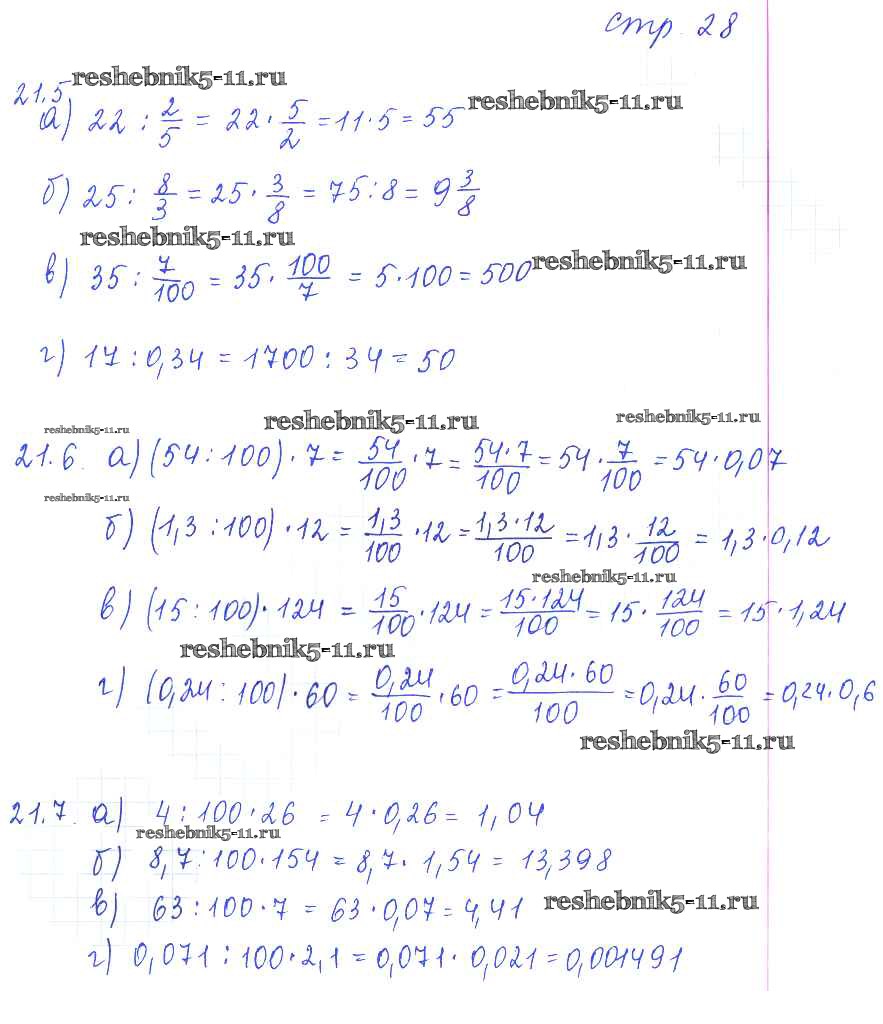 стр. 28
reshebnik5-11.ru
21.5
reshebnik5-11.ru
а) 22 : 2/5 = 22 · 5/2 = 11 · 5 = 55
б) 25 : 8/3 = 25 · 3/8 = 75 : 8 = 9 3/8
reshebnik5-11.ru
reshebnik5-11.ru
в) 35 : 7/100 = 35 · 100/7 = 5 · 100 = 500
г) 17 : 0,34 = 1700 : 34 = 50
reshebnik5-11.ru
reshebnik5-11.ru
reshebnik5-11.ru
21.6. а) (54 : 100) · 7 = 54/100 · 7 = 54 · 7/100 = 54 · 7/100 = 54 · 0,07
reshebnik5-11.ru
б) (1,3 : 100) · 12 = 1,3/100 · 12 = 1,3 · 12/100 = 1,3 · 12/100 = 1,3 · 0,12
reshebnik5-11.ru
в) (15 : 100) · 124 = 15/100 · 124 = 15 · 124/100 = 15 · 124/100 = 15 · 1,24
reshebnik5-11.ru
г) (0,24 : 100) · 60 = 0,24/100 · 60 = 0,24 · 60/100 = 0,24 · 60/100 = 0,24 · 0,6
reshebnik5-11.ru
21.7. а) 4 : 100 · 26 = 4 · 0,26 = 1,04
reshebnik5-11.ru
б) 8,7 : 100 · 154 = 8,7 · 1,54 = 13,398
в) 63 : 100 · 7 = 63 · 0,07 = 4,41
reshebnik5-11.ru
г) 0,071 : 100 · 2,1 = 0,071 · 0,021 = 0,001491